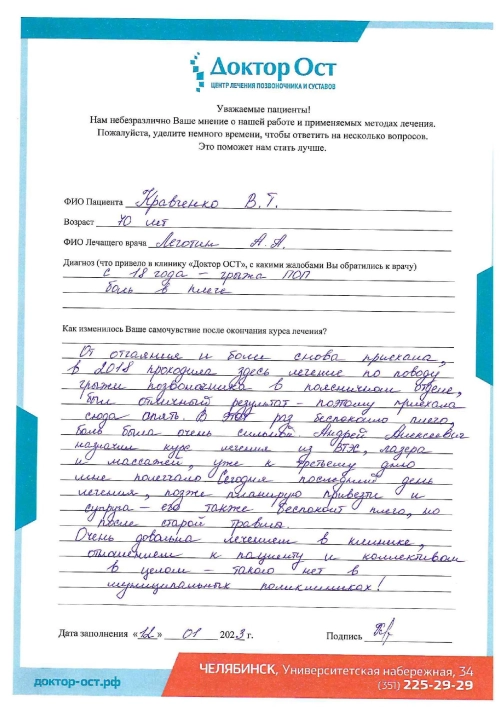 Доктор Ост
ЦЕНТР ЛЕЧЕНИЯ ПОЗВОНОЧНИКА И СУСТАВОВ
Уважаемые пациенты!
Нам небезразлично Ваше мнение о нашей работе и применяемых методах лечения.
Пожалуйста, уделите немного времени, чтобы ответить на несколько вопросов.
Это поможет нам стать лучше.
ФИО Пациента Кравченко В.Т.
Возраст 70 лет
ФИО Лечащего врача Леготин А.А.
Диагноз (что привело в клинику «Доктор ОСТ», с какими жалобами Вы обратились к врачу)
с 18 года – грыжа ПОП
боль в плече
Как изменилось Ваше самочувствие после окончания курса лечения?
От отчаяния и боли снова приехала,
в 2018 проходила здесь лечение по поводу
грыжи позвоночника в поясничном отделе,
был отличный результат – поэтому приехала
сюда опять. В этот раз беспокоило плечо,
боль была очень сильной. Андрей Алексеевич
назначил курс лечения из ВТЖ, лазера
и массажей, уже к третьему дню
мне полегчало. Сегодня последний день
лечения, позже планирую привезти и
супруга – его также беспокоит плечо, но
после старой травмы.
Очень довольна лечением в клинике,
отношением к пациенту и коллективом
в целом – такого нет в
муниципальных поликлиниках!
Дата заполнения «12» 01 2023 г. Подпись
ЧЕЛЯБИНСК, Университетская набережная, 34
доктор-ост.рф (351) 225-29-29